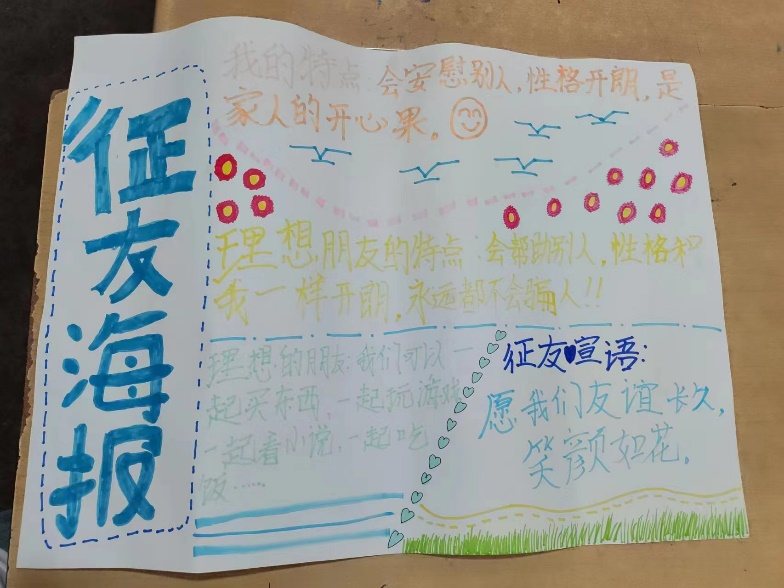 征友海报
我的特点:会安慰别人,性格开朗,是
家人的开心果。
理想朋友的特点:会帮助别人,性格和
我一样开朗,永远都不会骗人!!
理想的朋友:我们可以一
起买东西,一起玩游戏
一起看小说,一起吃
饭……
征友♥宣语:
愿我们友谊长久,
笑颜如花。